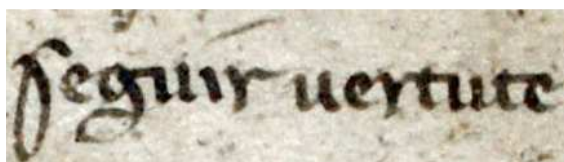 seguir uertute